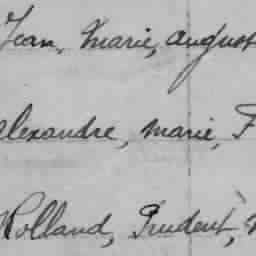 Jean, Marie, August
Alexandre, Marie, F
Rolland, Prudent,